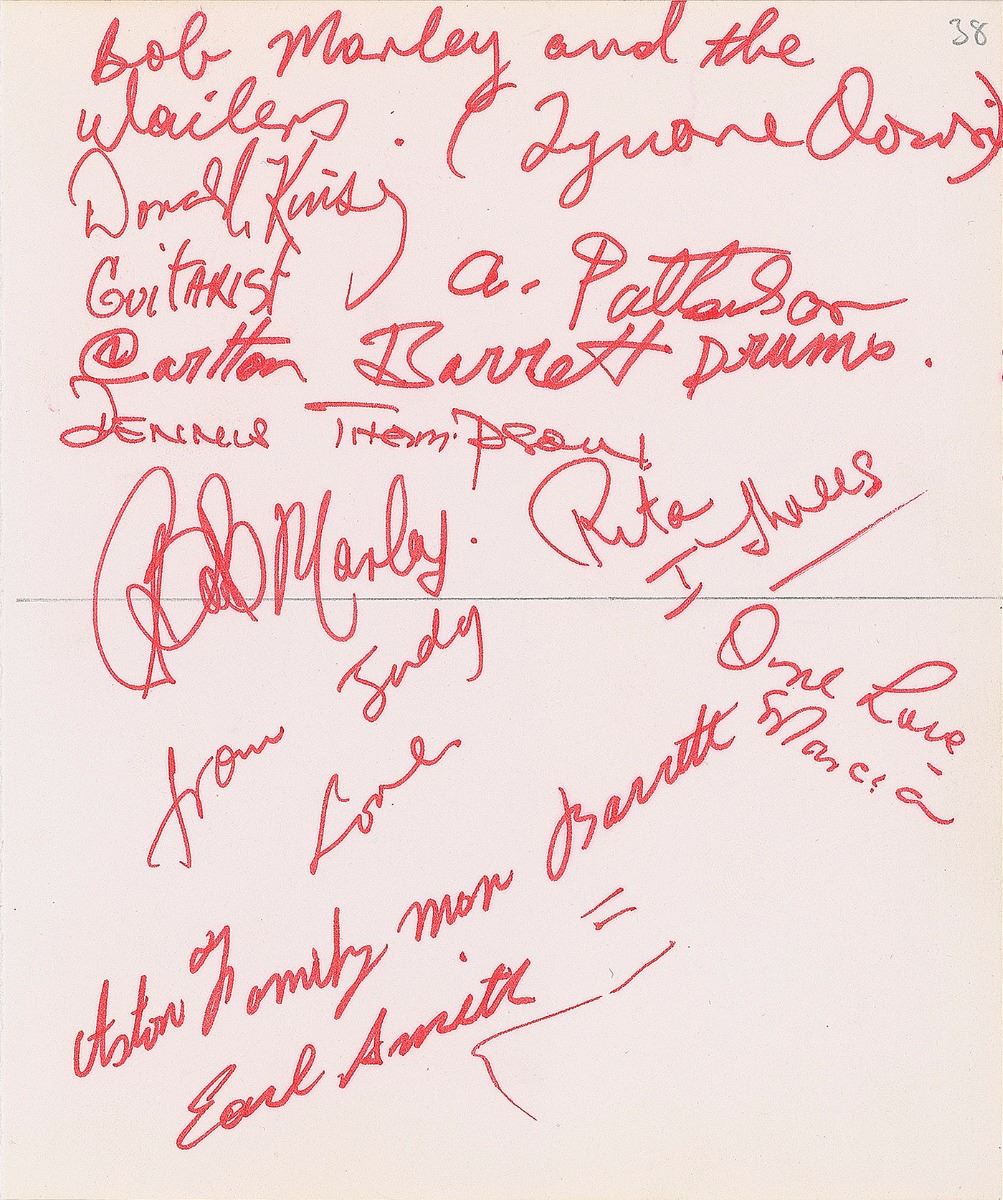 38
Bob Marley and the
Wailers. (Tyrone Downie)
Donald Kinsey
GUITARIST
A. Patterson
Carlton Barrett Drums.
DENNIS THOMPSON
Bob Marley.
Rita
I Threes
from Judy
Love
One Love
Marcia
Aston Family man Barrett
Earl Smith